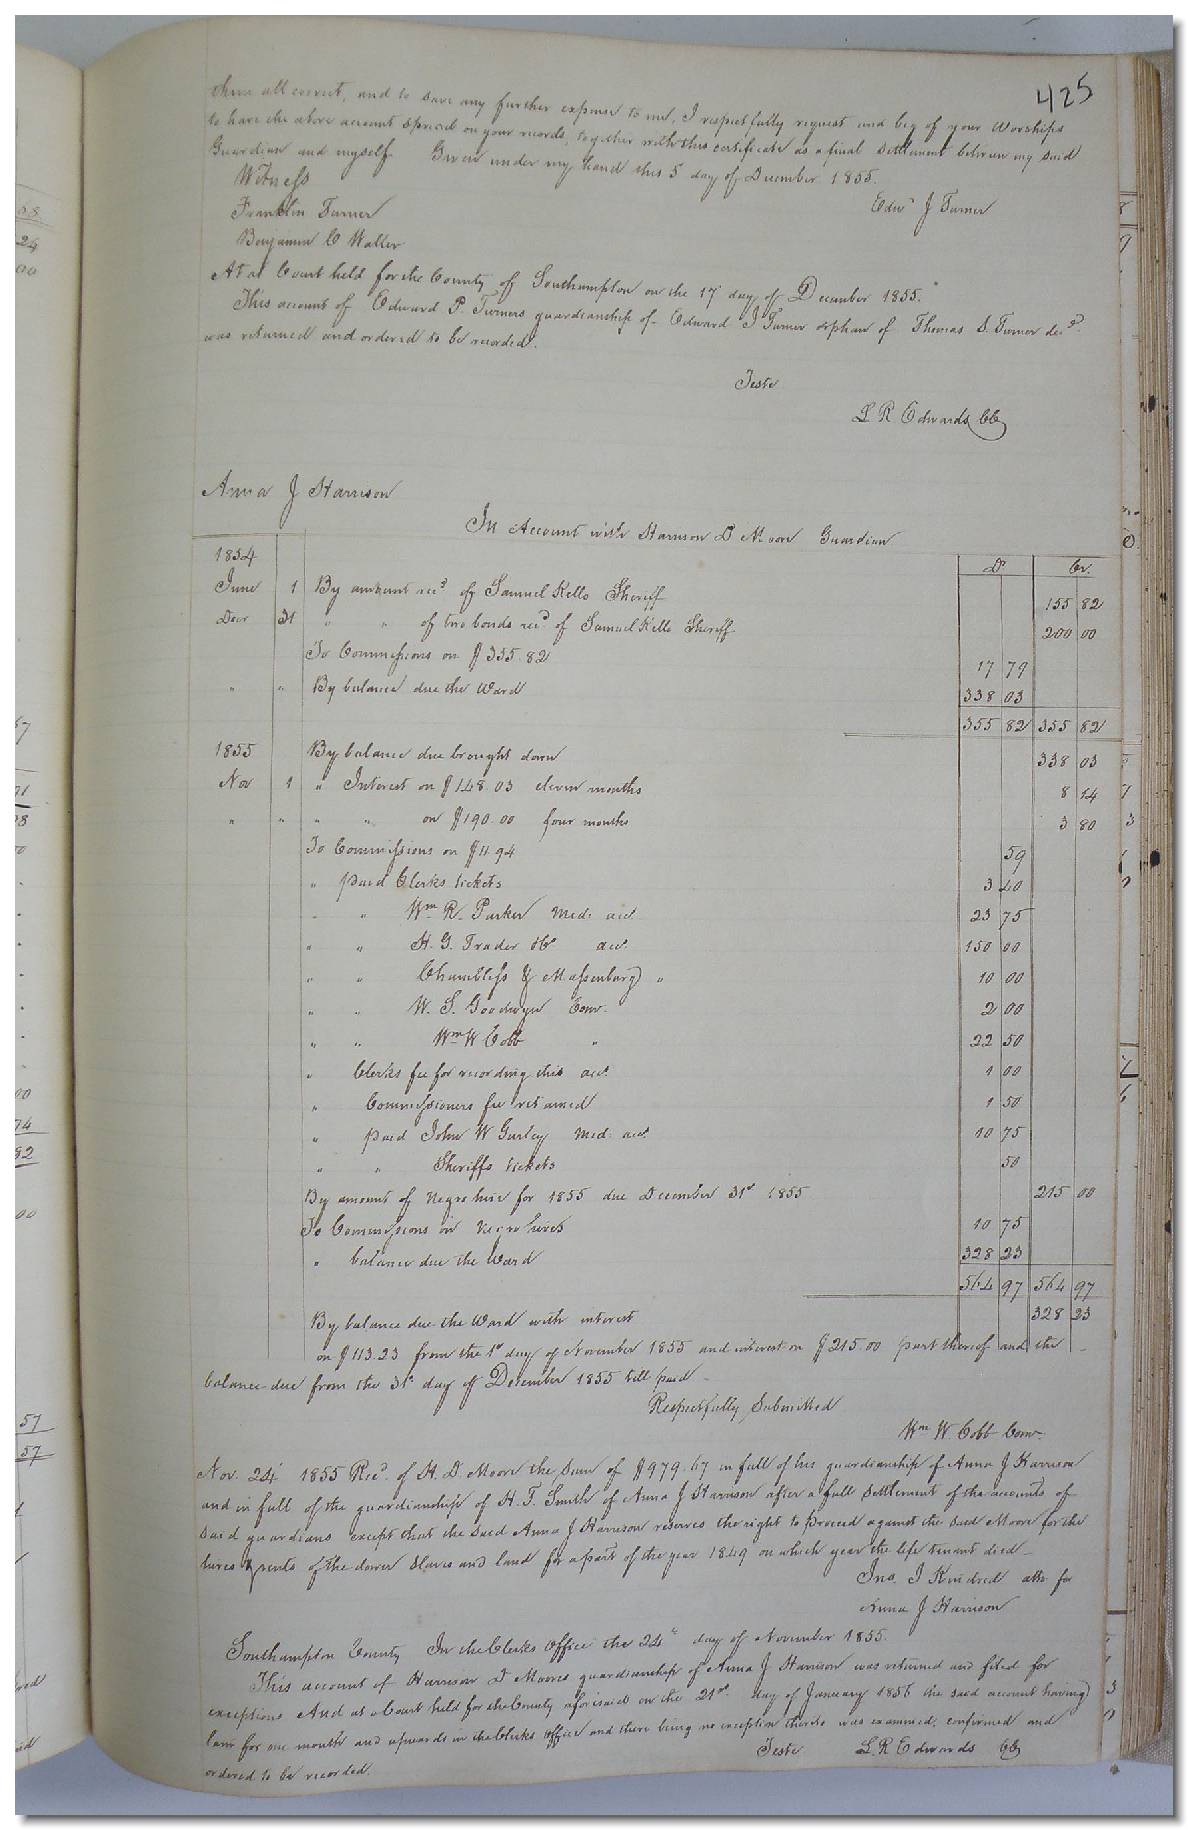 425
them all correct, and to save any further expense to me, I respectfully request and beg of your Worships
to have the above account spread on your records, together with this certificate as a final settlement between my said
Guardian and myself Given under my hand this 5 day of December 1855.
Witness
Edwd J Turner
Franklin Turner
Benjamin C Waller
At a Court held for the County of Southampton on the 17 day of December 1855.
This account of Edward P. Turners guardianship of Edward J Turner orphan of Thomas S. Turner decd.
was returned and ordered to be recorded.
Teste
L R Edwards CC
Anna J Harrison
In Account with Harrison D Moore Guardian
1854 Dr Cr.
June 1 By amount recd of Samuel Kello Sheriff 155 82
Decr 31 " " of two bonds recd of Samuel Kello Sheriff 200 00
To Commissions on $355.82 17 79
" " By balance due the Ward 338 03
355 82 355 82
1855 By balance due brought down 338 03
Nov 1 " Interest on $148.03 eleven months 8 14
" " " " on $190.00 four months 3 80
To Commissions on $11.94 59
" paid Clerks tickets 3 40
" " Wm R. Parker Med: acct. 23 75
" " H. G. Trader acct. 150 00
" " Chambliss & Massenburg " 10 00
" " W. S. Goodwyn Comr. 2 00
" " Wm W Cobb " 22 50
" Clerks fee for recording this acct. 1 00
" Commissioners fee returned 1 50
" paid John W Gurley Med: acct. 10 75
" " Sheriffs tickets 50
By amount of Negro hire for 1855 due December 31st 1855 215 00
To Commissions on Negro hires 10 75
" balance due the Ward 328 23
564 97 564 97
By balance due the Ward with interest 328 23
on $113.23 from the 1st day of November 1855 and interest on $215.00 part thereof and the
balance due from the 31st day of December 1855 till paid
Respectfully Submitted
Wm W Cobb Comr.
Nov. 24 1855 Recd. of H. D. Moore the sum of $979.67 in full of his guardianship of Anna J Harrison
and in full of the guardianship of H. T. Smith of Anna J Harrison after a full settlement of the accounts of
said guardians except that the said Anna J Harrison reserves the right to proceed against the said Moore for the
hires & rents of the dower slaves and land for a part of the year 1849 on which year the life tenant died
Jno. J Kindred atto for
Anna J Harrison
Southampton County In the Clerks Office the 24th day of November 1855.
This account of Harrison D Moores guardianship of Anna J Harrison was returned and filed for
exceptions And at a Court held for the County aforesaid on the 21st day of January 1856 the said account having
lain for one month and upwards in the Clerks Office and there being no exception thereto was examined, confirmed and
ordered to be recorded.
Teste L. R. Edwards CC